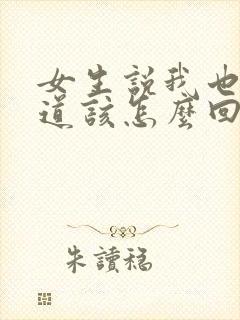 女生説我也
道該怎麼回
朱讀稳